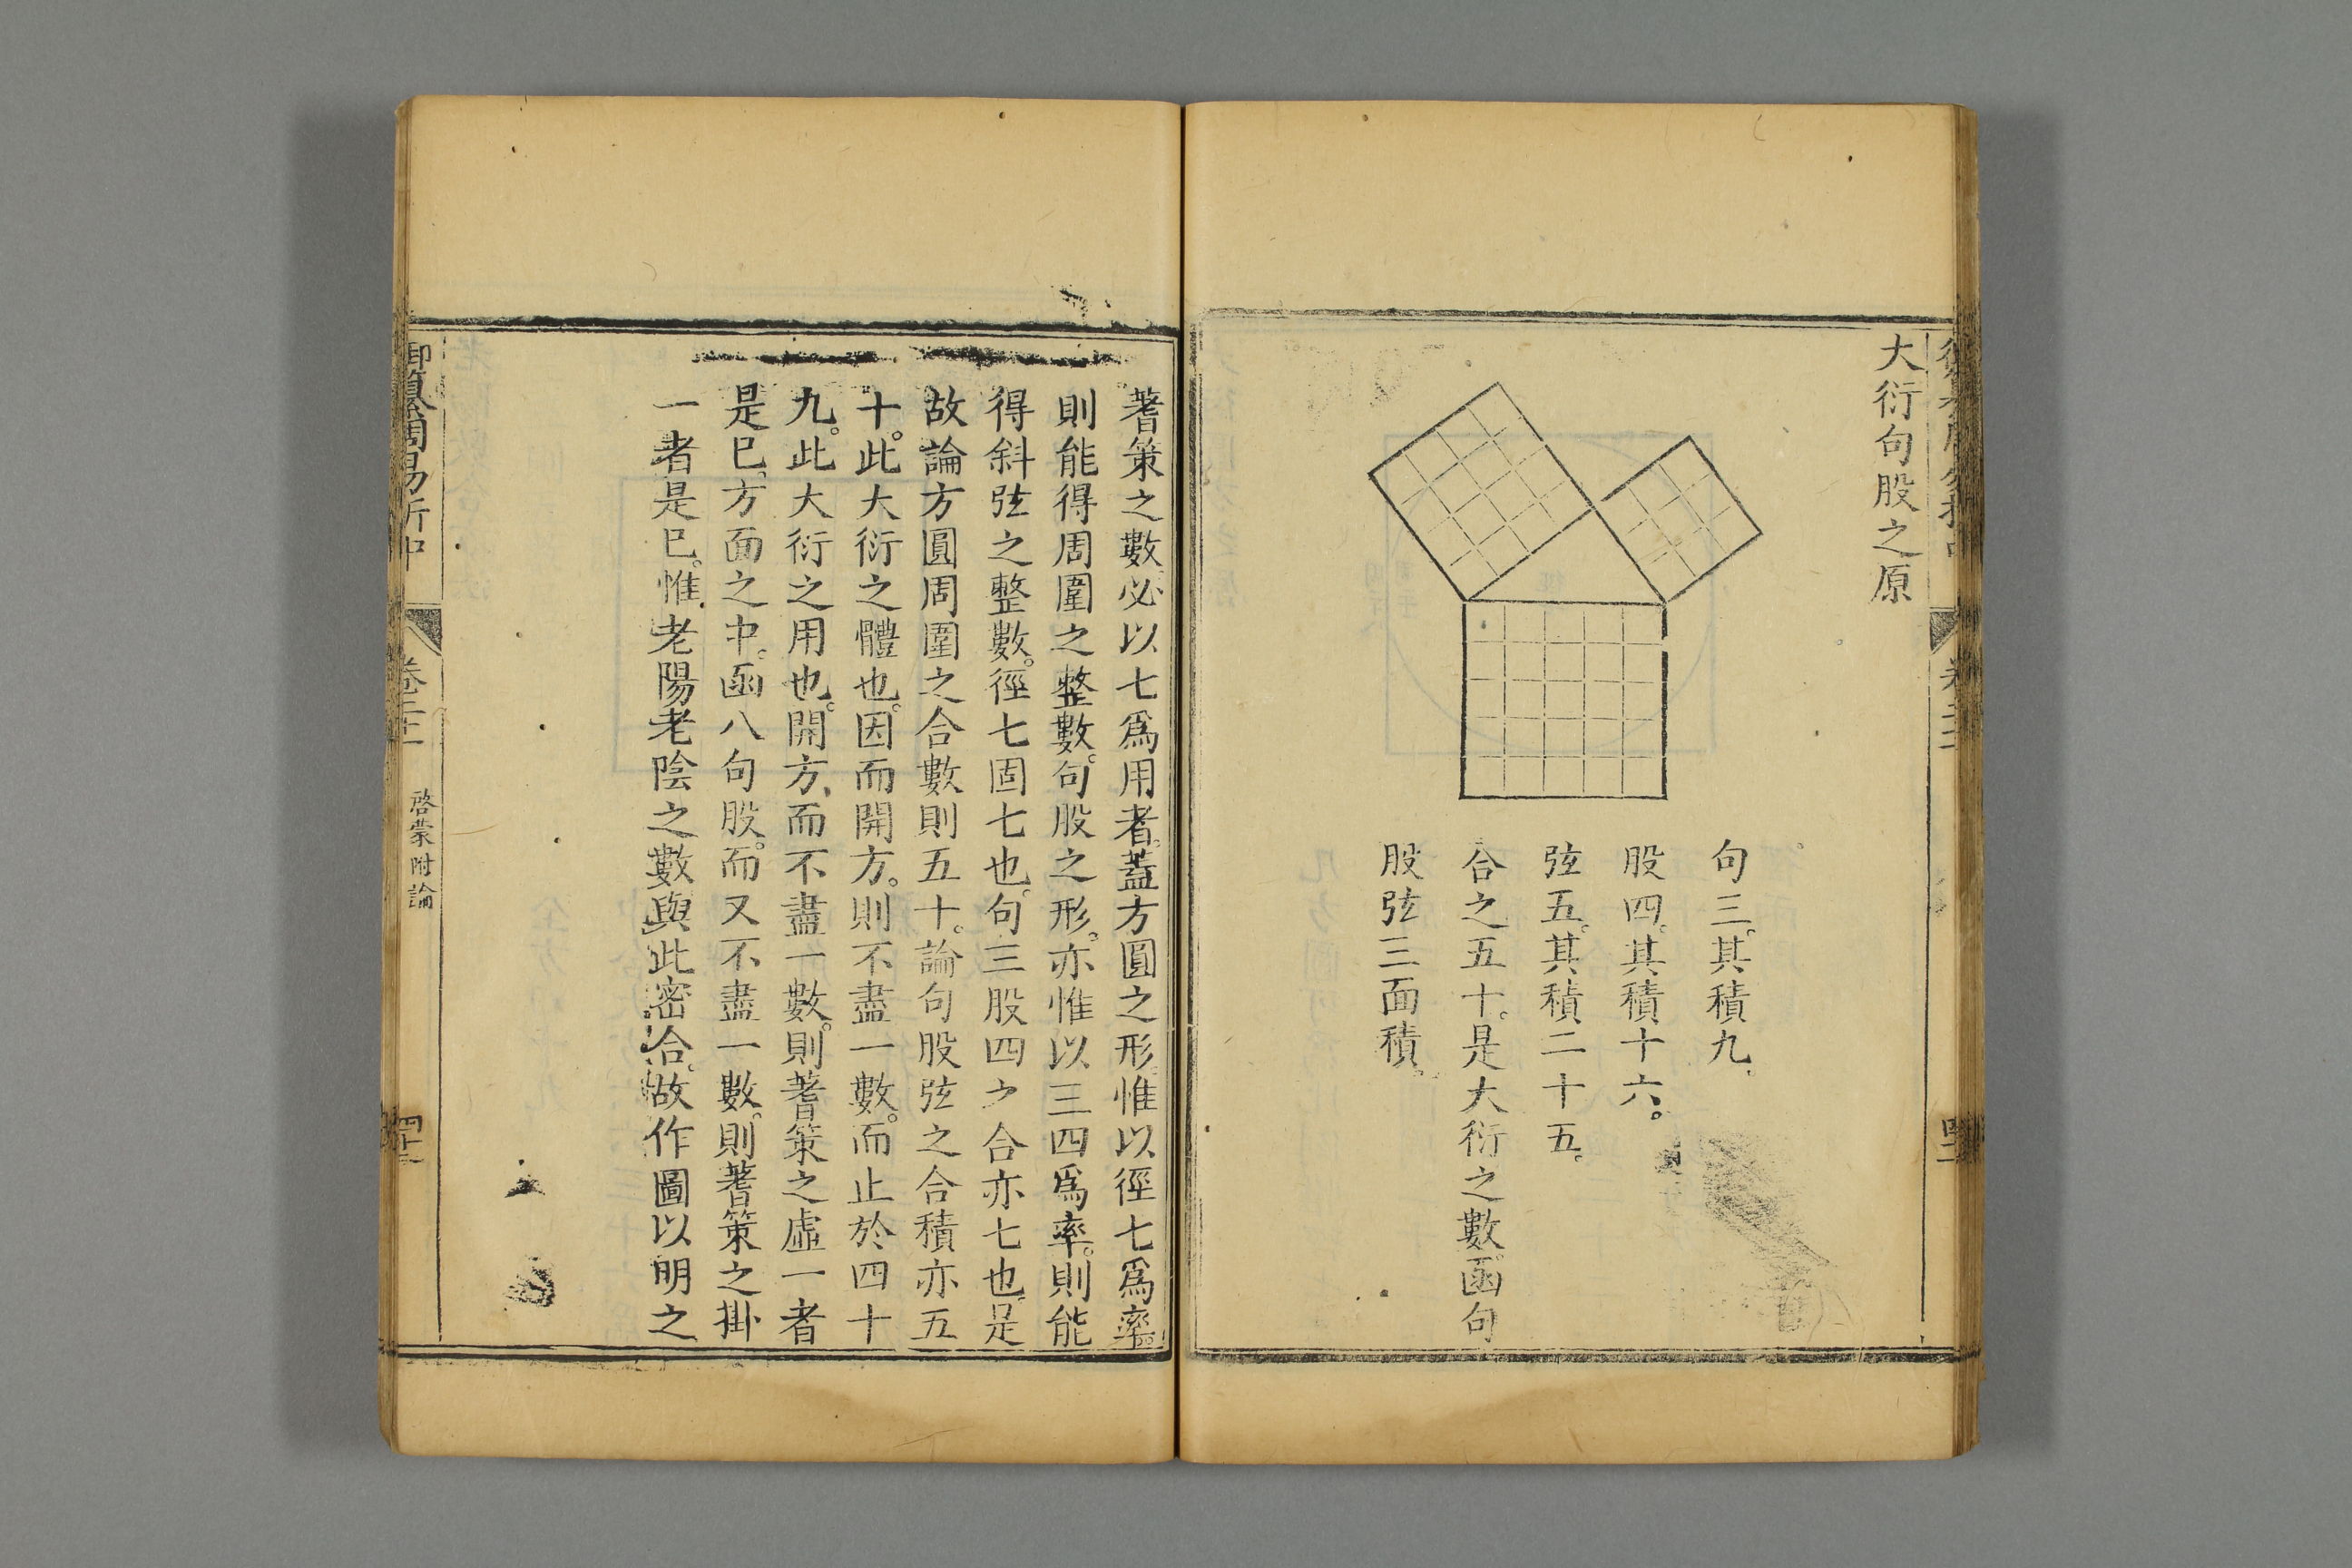 大衍句股之原
句三。其積九。
股四。其積十六。
弦五。其積二十五。
合之五十。是大衍之數函句
股弦三面積。
蓍策之數必以七爲用者。蓋方圓之形。惟以徑七爲率。
則能得周圍之整數。句股之形。亦惟以三四爲率。則能
得斜弦之整數。徑七固七也。句三股四之合亦七也。是
故論方圓周圍之合數則五十。論句股弦之合積亦五
十。此大衍之體也。因而開方。則不盡一數。而止於四十
九。此大衍之用也。開方、而不盡一數。則蓍策之虛一者
是巳。方面之中。函八句股。而又不盡一數。則蓍策之掛
一者是巳。惟老陽老陰之數與此密合。故作圖以明之
御纂周易折中
卷二十一
啓蒙附論